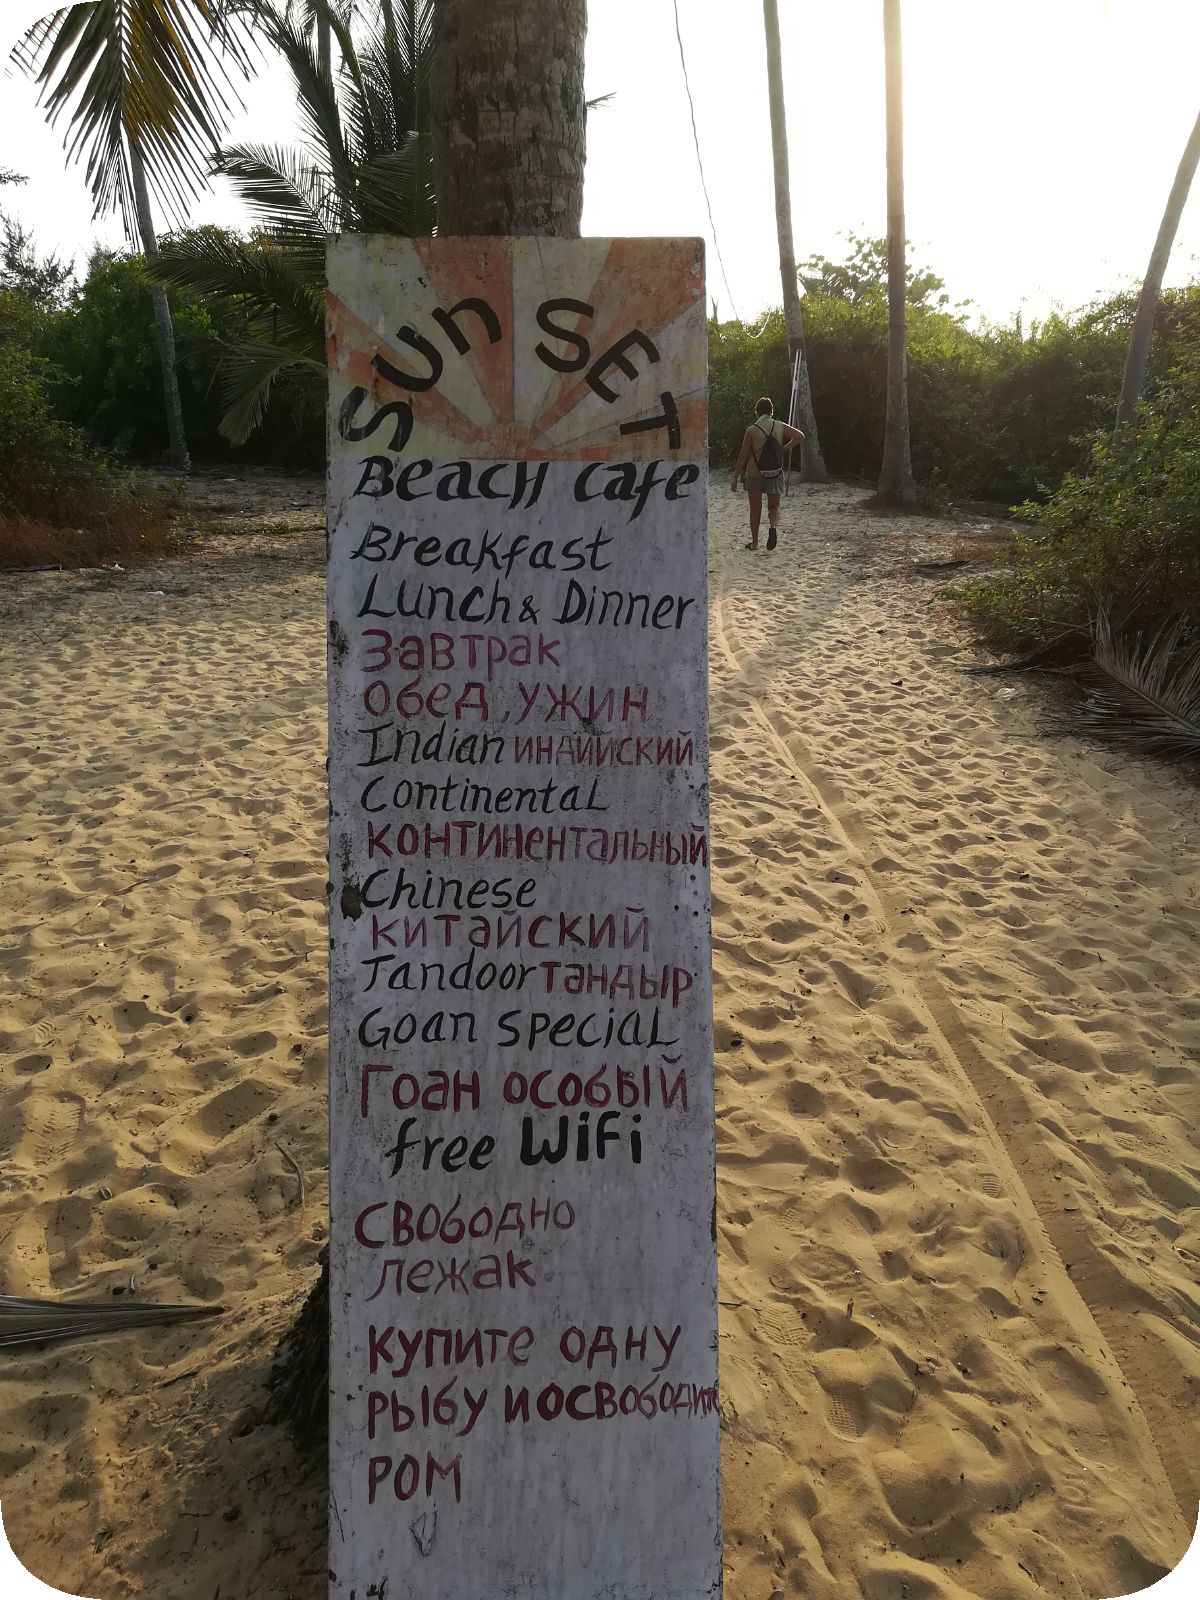 SUnSET
BEACH cafe
Breakfast
Lunch & Dinner
завтрак
обед, ужин
Indian индийский
Continental
континентальный
Chinese
китайский
Tandoor тандыр
Goan special
Гоан особый
free WiFi
свободно
лежак
купите одну
рыбу и освободите
ром